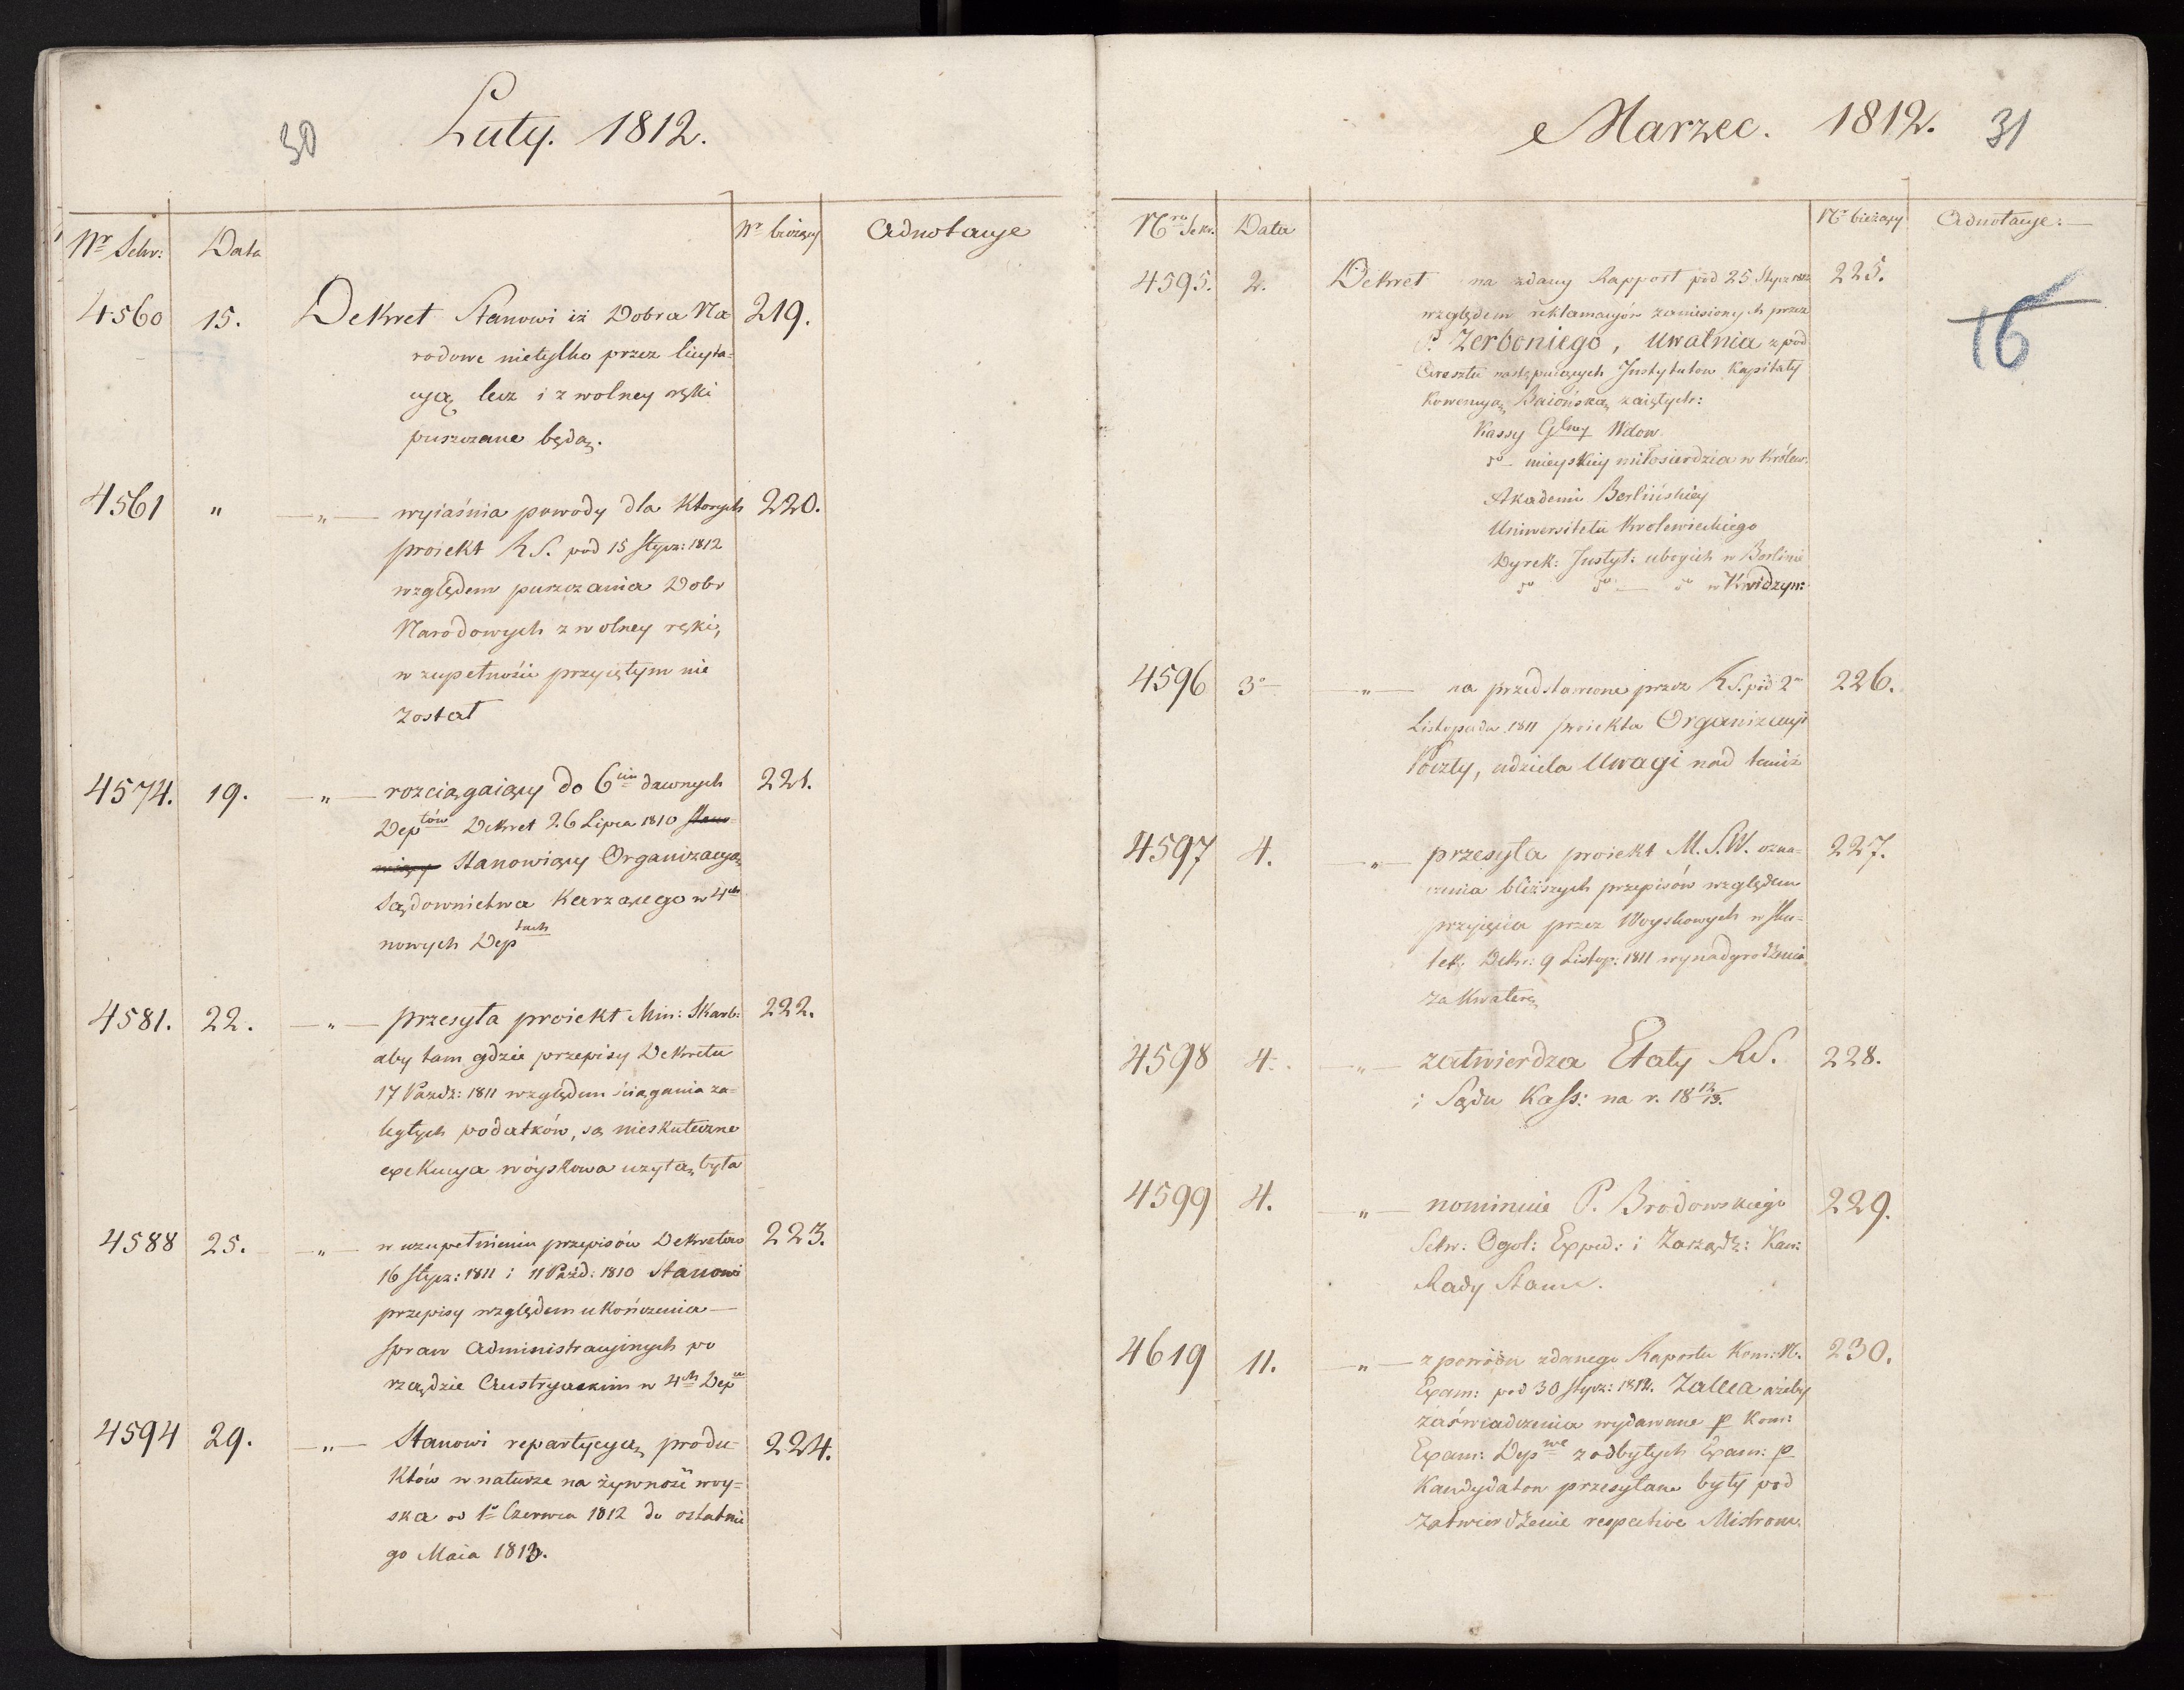 30
Luty. 1812.
Nr Sekr: Data Nr bieżący Adnotacye
4560 15. Dekret Stanowi iż Dobra Na 219.
rodowe nietylko przez licyta-
cyą lecz i z wolney ręki
puszczane będą.
4561 " — " — wyiaśnia powody dla Ktorych 220.
proiekt R S. pod 15 Stycz: 1812
względem puszczania Dobr
Narodowych z wolney ręki,
w zupełności przyiętym nie
został
4574. 19. — " — rozciągaiący do 6ciu dawnych 221.
Deptów Dekret 26 Lipca 1810 Stano-
wiący Stanowiący Organizacyą
Sądownictwa Karzącego w 4ch
nowych Deptach
4581. 22. — " — przesyła proiekt Min: Skarb: 222.
aby tam gdzie przepisy Dekretu
17 Pazdz: 1811 względem ściągania za-
ległych podatków, są nieskuteczne
exekucya wóyskowa uzytą była
4588 25. — " — w uzupełnieniu przepisów Dekretów 223.
16 Stycz: 1811 i 11 Paźd: 1810 Stanowi
przepisy względem ukończenia —
spraw Administracyinych po
rządzie Austryackim w 4ch Dep
4594 29. — " — Stanowi repartycyą produ- 224.
któw w naturze na żywność woy-
ska od 1o Czerwca 1812 do ostatnie
go Maia 1813.
Marzec. 1812. 31
Nro Sekr. Data Nr bieżący Adnotacye: —
4595. 2. Dekret na zdany Rapport pod 25 Stycz 1812 225.
względem reklamacyów zaniesionych przez
P. Zerboniego, Uwalnia z pod
Aresztu następuiących Instytutow Kapitały
Konwencyą Baiońską zaiętych:
Kassy Glney Wdow.
do mieyskiey miłosierdzia w Królew:
Akademii Berlińskiey
Uniwersitetu Krolewieckiego
Dyrek: Instyt: ubogich w Berlinie
do do — do w Kwidzyn:
16
4596 3o — " — na przedstawione przez R S. pod 2o 226.
Listopada 1811 proiekta Organizacyi
Poczty, udziela Uwagi nad temiż
4597 4. — " — przesyła proiekt M. S. W. ozna- 227.
czenia bliższych przepisów względem
przyięcia przez Woyskowych w sku-
tek Dekr: 9 Listop: 1811 wynadgrodzenia
za Kwaterę
4598 4. — " — zatwierdza Etaty RS. 228.
i Sądu Kass: na r. 18 12/13.
4599 4. — " — nominuie P. Brodowskiego 229.
Sekr: Ogól: Exped: i Zarządz: Kan:
Rady Stanu.
4619 11. — " — z powodu zdanego Raportu Kom: N. 230.
Exam: pod 30 Stycz: 1812. Zaleca ażeby
zaświadczenia wydawane p Kom:
Exam: Depwe z odbytych Exam: p
Kandydatow przesyłane były pod
zatwierdzenie respective Mistrow.